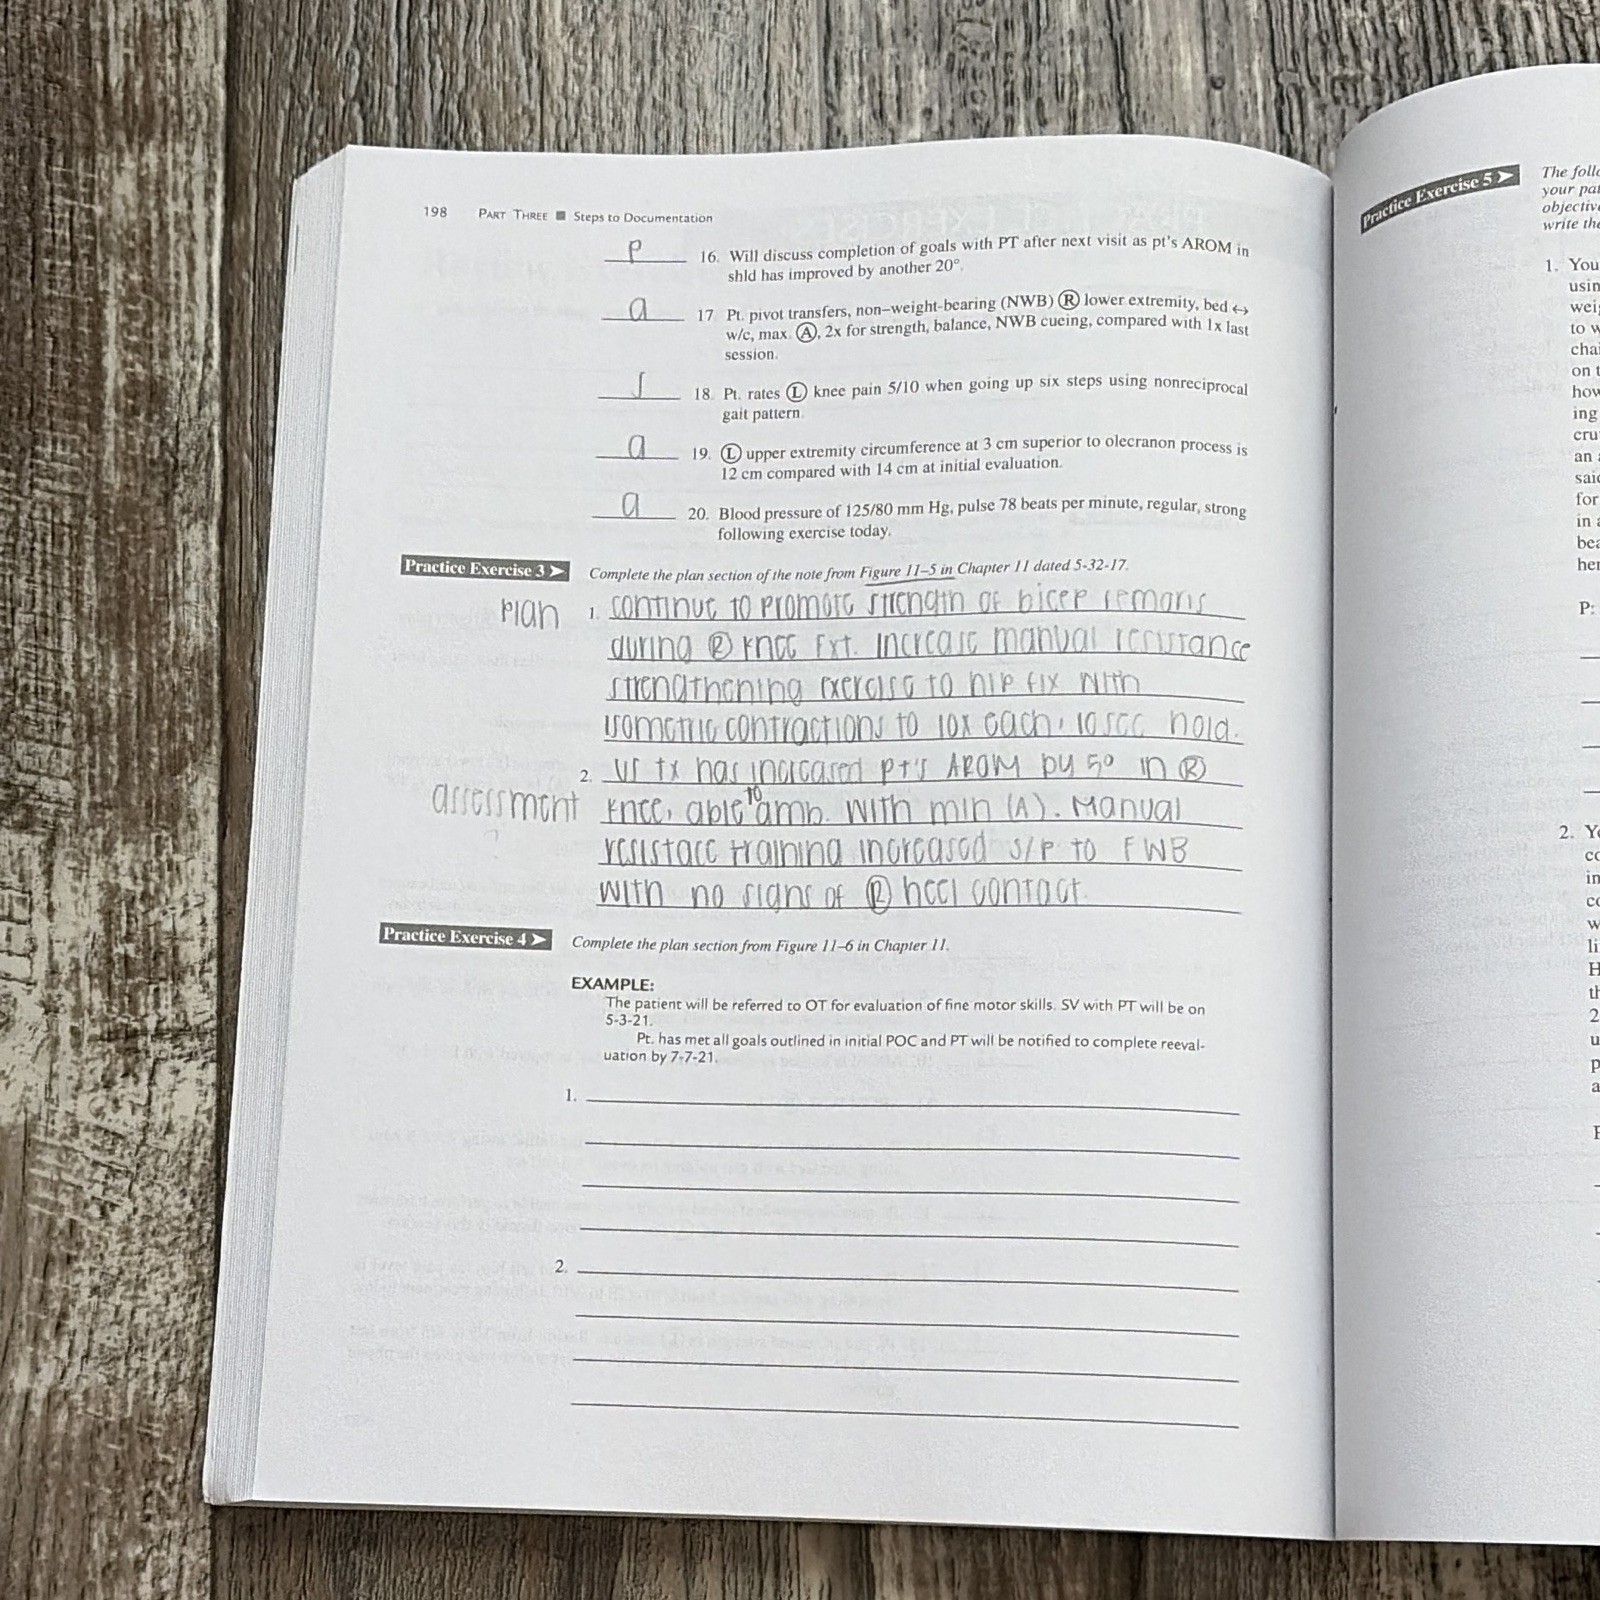 198 PART THREE ■ Steps to Documentation
P 16. Will discuss completion of goals with PT after next visit as pt's AROM in
shld has improved by another 20°.
a 17. Pt. pivot transfers, non-weight-bearing (NWB) Ⓡ lower extremity, bed ↔
w/c, max. Ⓐ, 2x for strength, balance, NWB cueing, compared with 1x last
session.
S 18. Pt. rates Ⓛ knee pain 5/10 when going up six steps using nonreciprocal
gait pattern.
a 19. Ⓛ upper extremity circumference at 3 cm superior to olecranon process is
12 cm compared with 14 cm at initial evaluation.
a 20. Blood pressure of 125/80 mm Hg, pulse 78 beats per minute, regular, strong
following exercise today.
Practice Exercise 3 ➤ Complete the plan section of the note from Figure 11–5 in Chapter 11 dated 5-32-17.
Plan 1. continue to promote strength of bicep femoris
during Ⓡ knee Ext. Increase manual resistance
strengthening exercise to hip flx with
isometric contractions to 10x each, 10 sec hold.
2. US tx has increased pt's AROM by 5° in Ⓡ
assessment knee, able to amb. with min (A). Manual
resistace training increased s/p to FWB
with no signs of Ⓡ heel contact.
Practice Exercise 4 ➤ Complete the plan section from Figure 11–6 in Chapter 11.
EXAMPLE:
The patient will be referred to OT for evaluation of fine motor skills. SV with PT will be on
5-3-21.
Pt. has met all goals outlined in initial POC and PT will be notified to complete reeval-
uation by 7-7-21.
1.
2.
Practice Exercise 5 ➤ The
your
write
1. You
to
on
ing
an
for
in
her
P:
2.